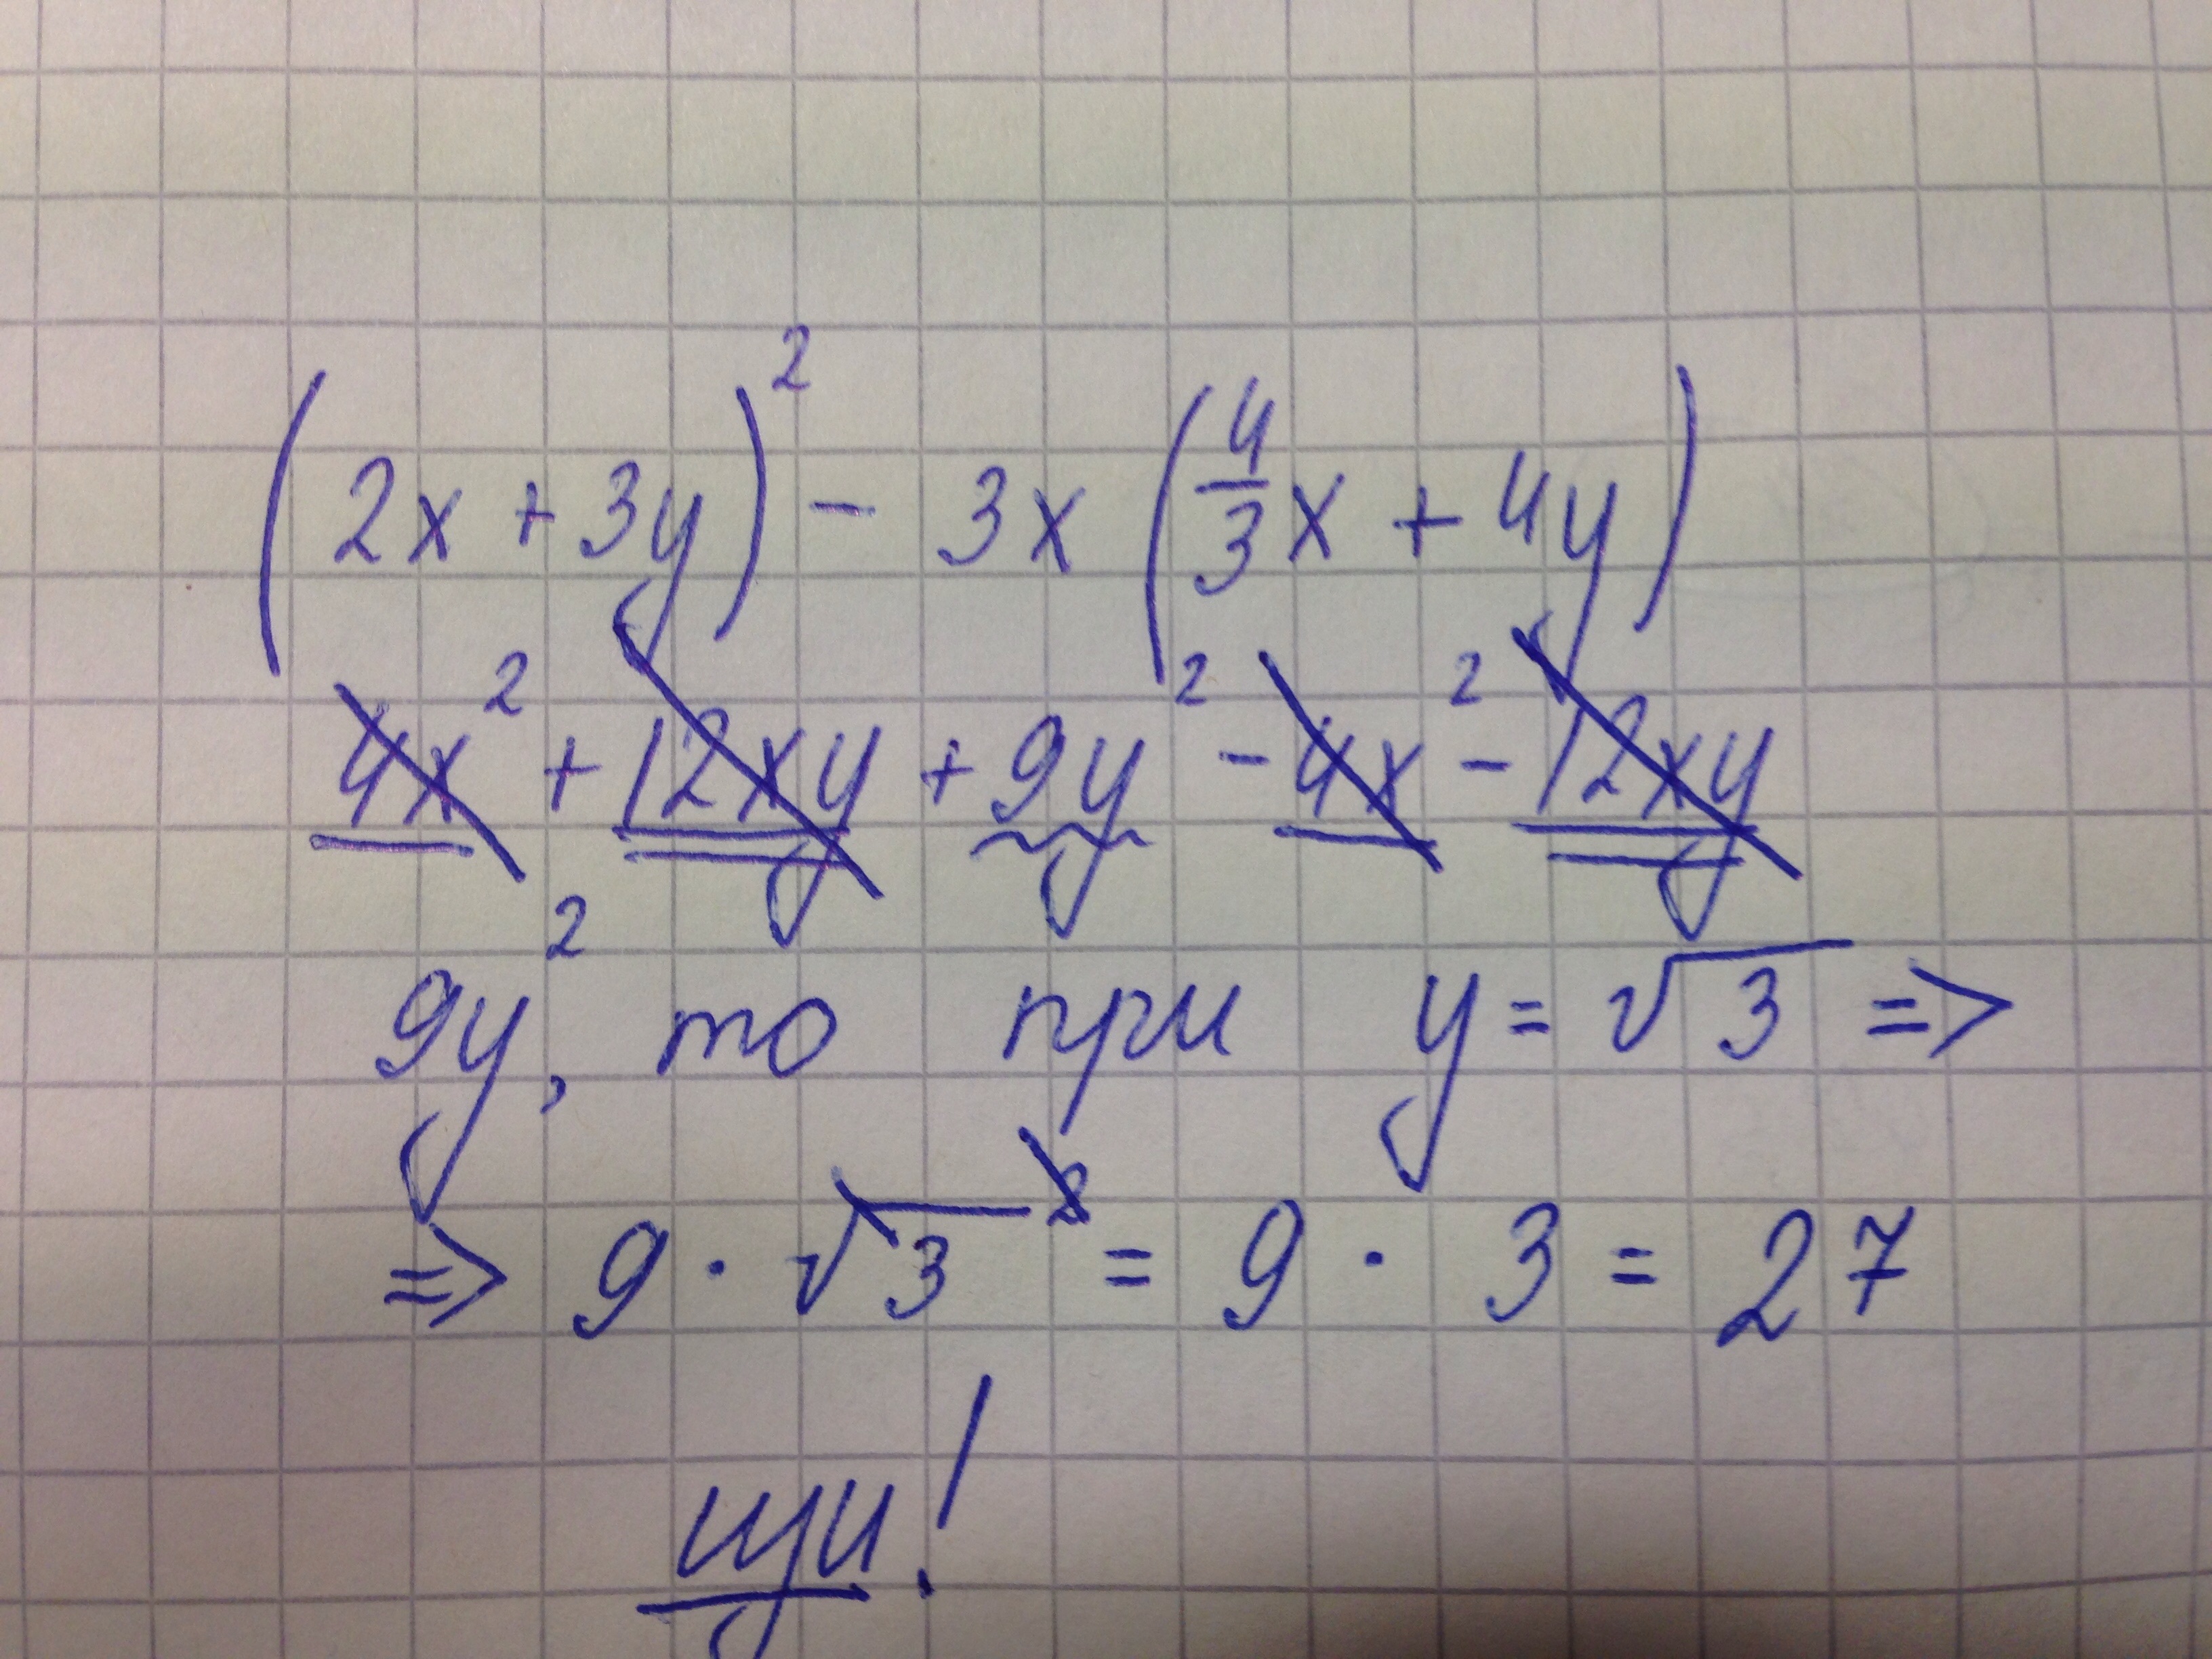 (2x + 3y)² - 3x(4/3x + 4y)
4x² + 12xy + 9y² - 4x² - 12xy
9y², то при y = √3 =>
=> 9 · √3² = 9 · 3 = 27